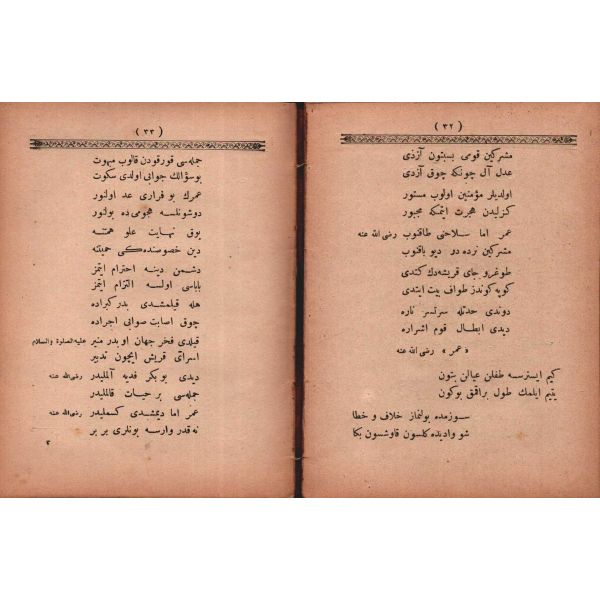 ( ٣٢ )
مشركين قومى بسبتون آزدى
عدل آل چونكه چوق آزدى
اولديلر مؤمنين اولوب مستور
كزليدن هجرت ايتمكه مجبور
عمر اما سلاحنى طاقنوب رضى الله عنه
مشركين نرده دو ديو باقنوب
طوغرو جاى قريشه‌دك كتدى
كوپه كوندز طواف بيت ايتدى
دوندى حدتله سرتسر ناره
ديدى ابطال قوم اشراره
« عمر » رضى الله عنه
كيم ايسترسه طفلن عيالن بتون
يتيم ايلمك طول براقمق بوكون
سوزمده بولنماز خلاف و خطا
شو واديده كلسون قاوشسون بكا
( ٣٣ )
جمله‌سى قورقودن قالوب مبهوت
بوسؤالك جوابى اولدى سكوت
عمرك بو فرارى عد اولنور
دوشونلسه هجومى ده بولنور
يوق نهايت علو همتنه
دين خصوصنده‌كى حميتنه
دشمن دينه احترام ايتمز
باباسى اولسه التزام ايتمز
هله قيلمشدى بدر كبراده
چوق اصابت صوابى اجراده
قيلدى فخر جهان او بدر منير عليه الصلوة والسلام
اسراى قريش ايچون تدبير
ديدى بوبكر فديه آلمليدر رضى الله عنه
جمله‌سى بر حيات قالمليدر
عمر اما ديمشدى كسمليدر رضى الله عنه
نه قدر وارسه بونلرى بر بر
٣